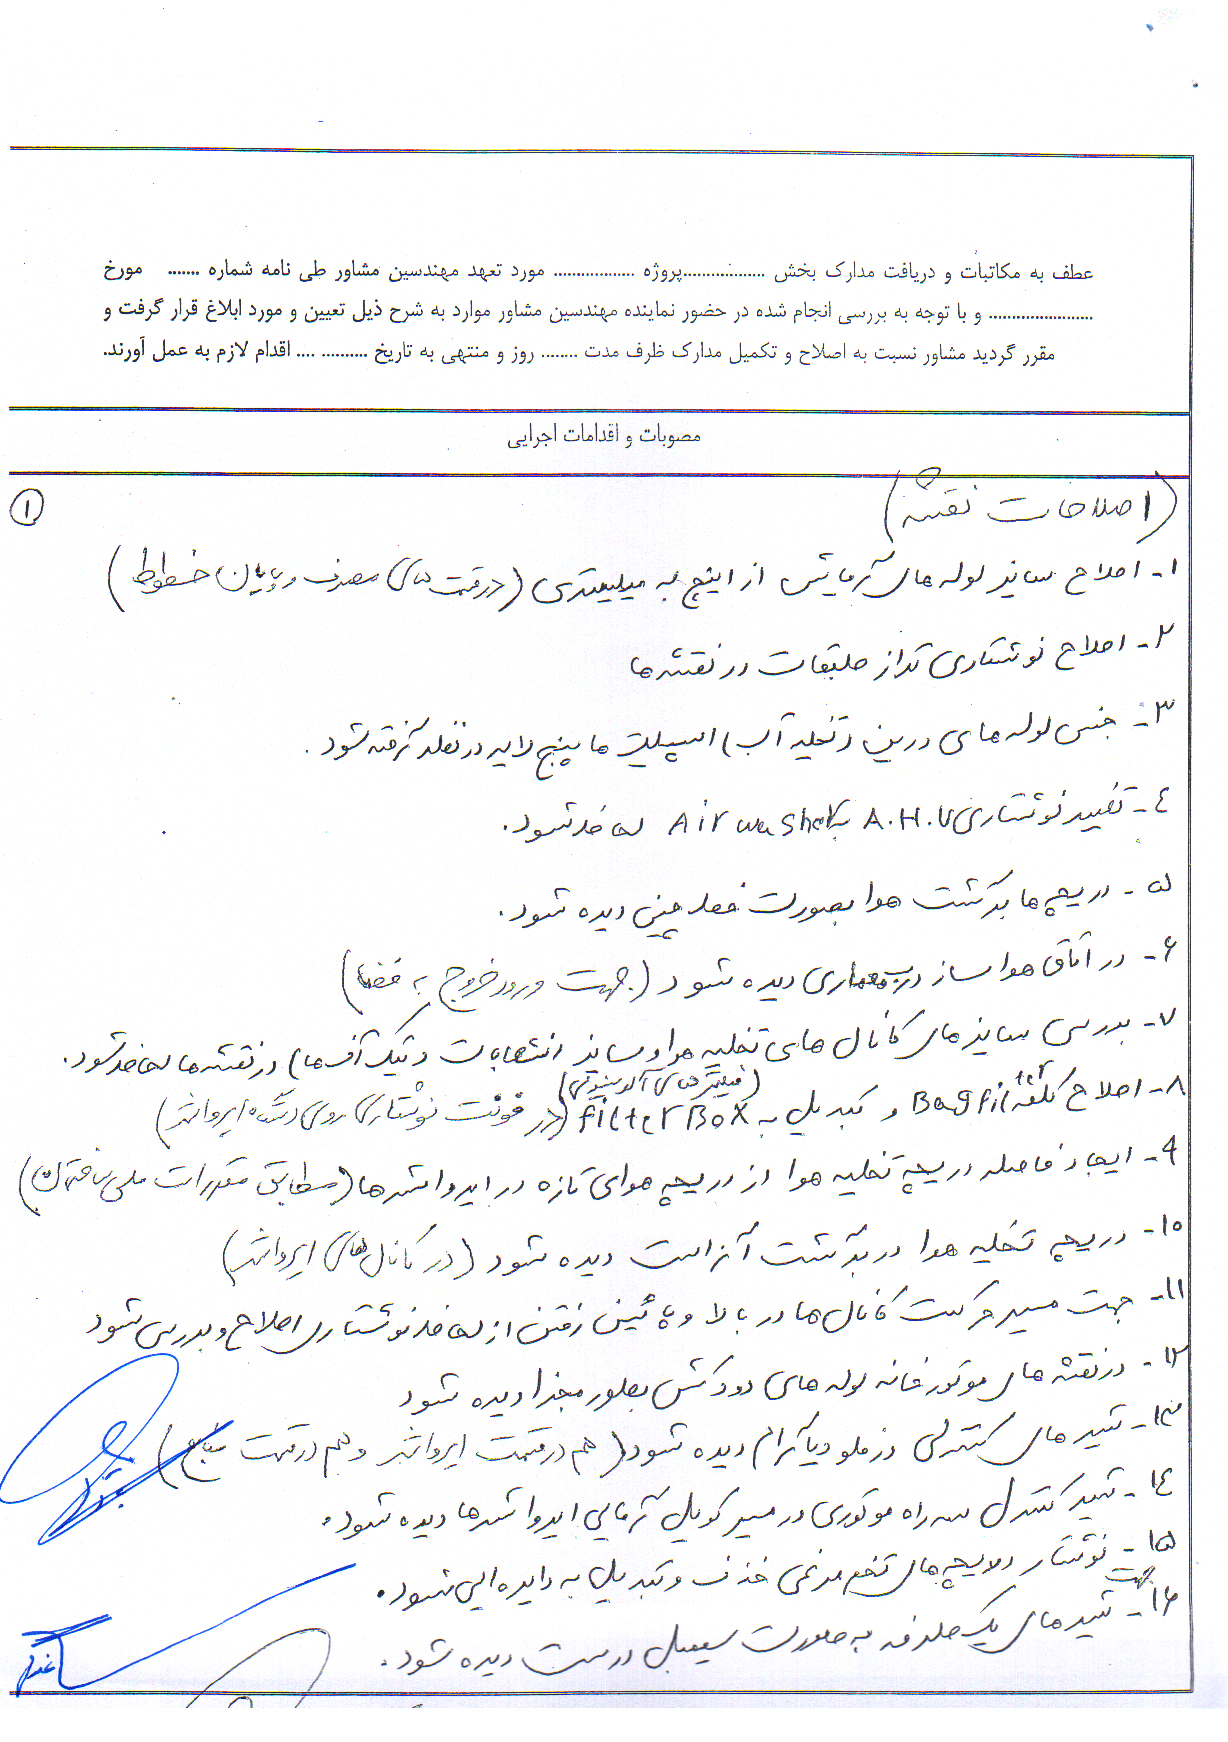 عطف به مکاتبات و دریافت مدارک بخش ..................پروژه .................. مورد تعهد مهندسین مشاور طی نامه شماره ....... مورخ
....................... و با توجه به بررسی انجام شده در حضور نماینده مهندسین مشاور موارد به شرح ذیل تعیین و مورد ابلاغ قرار گرفت و
مقرر گردید مشاور نسبت به اصلاح و تکمیل مدارک ظرف مدت ........ روز و منتهی به تاریخ .......... .... اقدام لازم به عمل آورند.
مصوبات و اقدامات اجرایی
(اصلاحات نقشه)
۱
۱- اصلاح سایز لوله های گرمایش از اینچ به میلیمتری (در قسمت های مصرف و پایان خطوط)
۲- اصلاح نوشتاری تراز طبقات در نقشه ها
۳- جنس لوله های درین (تخلیه آب) اسپلیت ها پنج لایه در نظر گرفته شود.
٤- تغییر نوشتاری A.H.U به Air washer لحاظ شود.
۵- دریچه ها برگشت هوا بصورت سقفی دیده شود.
۶- در اتاق هواساز درب معماری دیده شود (جهت ورود خروج به فضا)
۷- بررسی سایزهای کانال های تخلیه هوا و سایز انشعابات (تیک آف ها) در نقشه ها لحاظ شود.
۸- اصلاح کلمه Bag filter و تبدیل به filter Box (فیلترهای آلومینیومی) (در فونت نوشتاری روی دستگاه ایرواشر)
۹- ایجاد فاصله دریچه تخلیه هوا از دریچه هوای تازه در ایرواشرها (مطابق مقررات ملی ساختمان)
۱۰- دریچه تخلیه هوا در برگشت اگزاست دیده شود (در کانال های ایرواشر)
۱۱- جهت مسیر حرکت کانال ها در بالا و پائین رفتن از لحاظ نوشتاری اصلاح و بررسی شود
۱۲- در نقشه های موتورخانه لوله های دودکش بطور مجزا دیده شود
۱۳- شیرهای کنترلی در فلودیاگرام دیده شود (هم در قسمت ایرواشر و هم در قسمت منابع)
١٤- شیر کنترل سه راه موتوری در مسیر کویل گرمایی ایرواشرها دیده شود.
۱۵- نوشتار دریچه های تخم مرغی حذف و تبدیل به دایره ای شود.
جهت
۱۶- شیرهای یک طرفه به صورت سیمبل درست دیده شود.